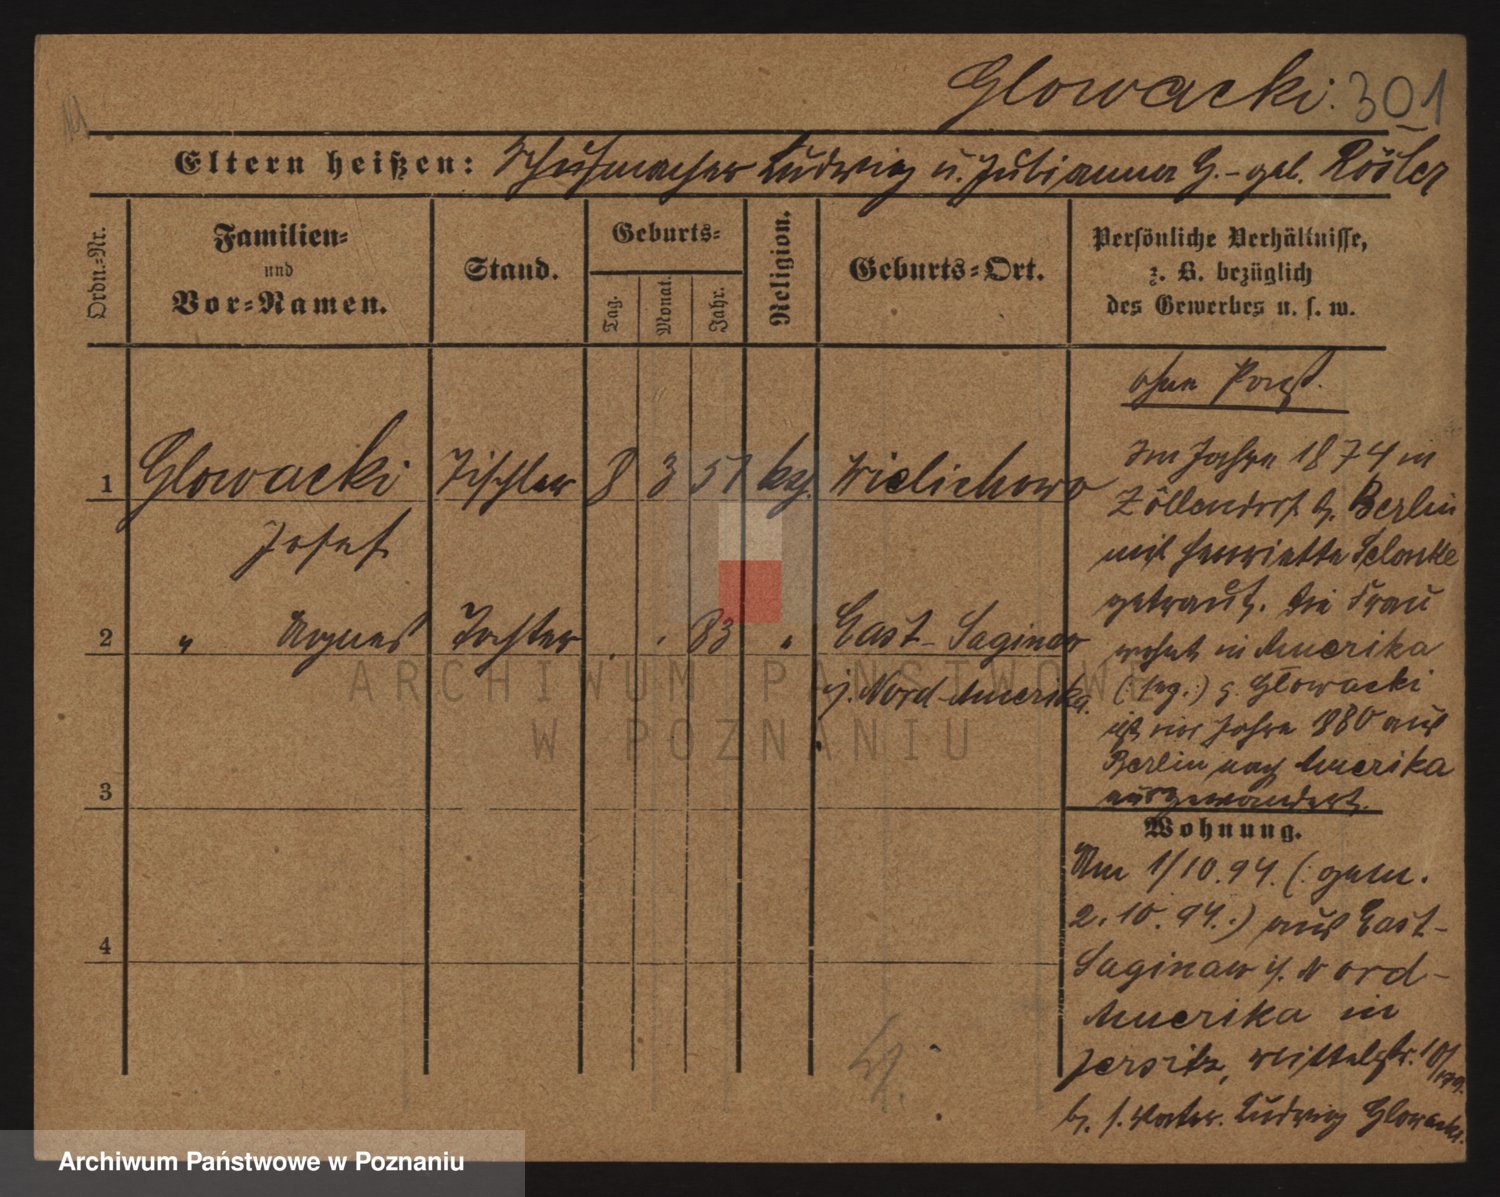 Glowacki. 301
Eltern heißen: Schuhmacher Ludwig u. Julianna G. - geb. Rösler
Ordn.-Nr.
Familien-
und
Vor-Namen.
Stand.
Geburts-
Tag.
Monat.
Jahr.
Religion.
Geburts-Ort.
Persönliche Verhältnisse,
z. B. bezüglich
des Gewerbes u. s. w.
ohne
1 Glowacki Tischler 8 3 51 Wielichowo
Josef
2 " Agnes Tochter . . 83 " East-Saginaw
i. Nord-Amerika.
3
4
Im Jahre 1874 in
Zöllendorf b. Berlin
mit Henriette
getraut. Die Frau
wohnt in Amerika
Glowacki
ist im Jahre 1880 aus
Berlin nach Amerika
ausgewandert.
Wohnung.
Am 1/10.94. (: gem.
2.10.94.:) aus East-
Saginaw i. Nord-
Amerika in
Jersitz,
b. s. Vater. Ludwig Glowacki.
ARCHIWUM PAŃSTWOWE
W POZNANIU
Archiwum Państwowe w Poznaniu